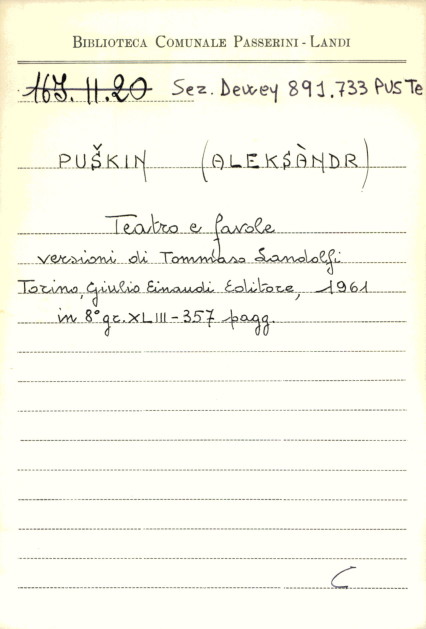 BIBLIOTECA COMUNALE PASSERINI - LANDI
16J. 11.20 Sez. Dewey 891.733 PUS Te
PUŠKIN (ALEKSÀNDR)
Teatro e favole
versioni di Tommaso Landolfi
Torino, Giulio Einaudi Editore, 1961
in 8° gr. XLIII - 357 pagg.
C